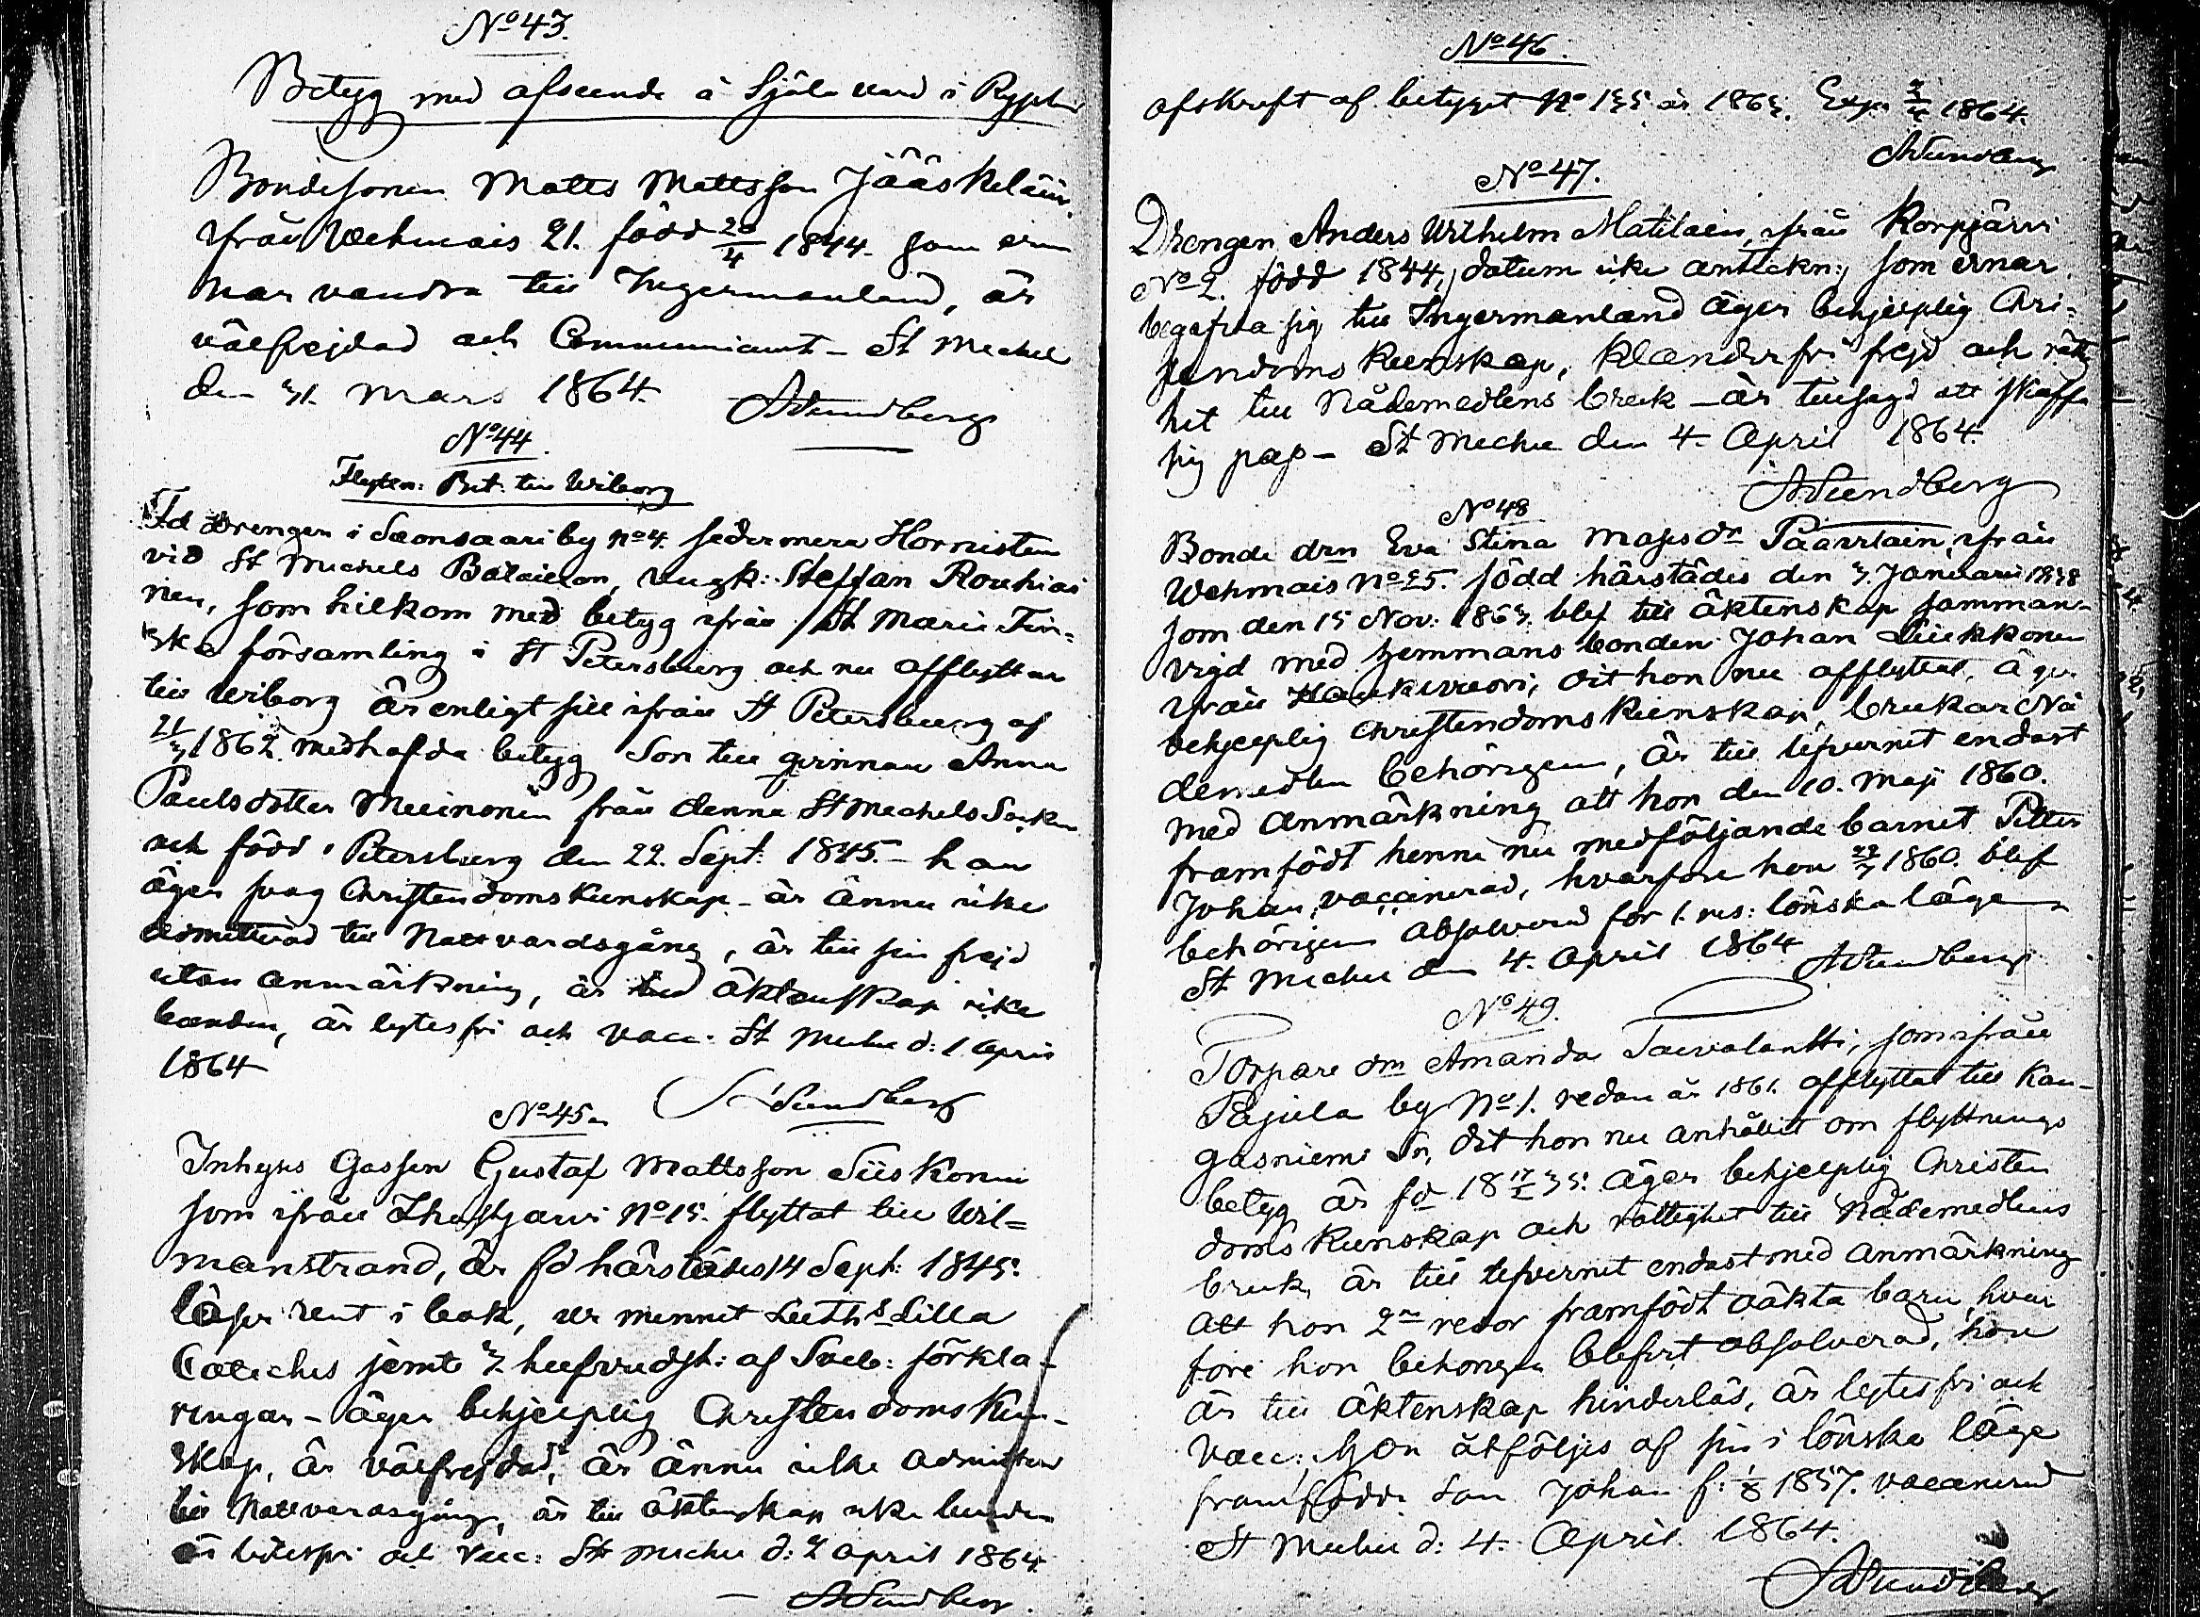 No 43.
Betyg med afseende å Själa vård i Ryssl:
Bondesonen Matts Mattsson Jääskeläin.
ifrån Wehmais 21. född 20/4 1844. som ern
nar vandra till Ingermanland, är
välfrejdad och Communicant - St Michel
den 31. Mars 1864.
ASundberg
No 44
Flyttn: Bet: till Wiborg
Fd drengen i Saonsaari by No 4. sedermera Hornisten
vid St Michels Bataillon, Steffan Rouhiai
nen, som hitkom med betyg ifrån St Marie Fin-
ska församling i St Petersburg och nu afflyttar
till Wiborg är enligt sitt ifrån St Petersburg af
21/3 1862. medhafda betyg Son till qvinnan Anna
Paulsdotter Muinonen från denna St Michels Socken
och född i Petersburg den 22. Sept: 1845. - han
äger svag Christendomskunskap - är ännu icke
admitterad till Nattvardsgång, är till sin frejd
utan anmärkning, är till äktenskap icke
bunden, är lytesfri och vacc. St Michel d: 1 April
1864
ASundberg
No 45.
Inhyses Gossen Gustaf Mattsson Siiskonen
som ifrån Ihastjärvi No 15. flyttat till Wil=
manstrand, är fd härstädes 14 Sept: 1845.
läser rent i bok, ur minnet Luthrs Lilla
Catches jemte 3 hufvudst: af Sveb: förkla-
ringar - äger behjelplig Christendoms Kun-
skap, är välfrejdad, är ännu icke admitterad
till Nattvardsgång, är till äktenskap icke bunden
är lytesfri och vacc: St Michel d: 2 April 1864.
ASundberg.
No 46.
afskrift af betyget No 135 år 1863. Exp. 1864.
ASundberg
No 47.
Drengen Anders Wilhelm Matilain, ifrån Korpjärvi
No 2. född 1844, datum icke anteckn:, som ernar
begifva sig till Ingermanland äger behjelplig Chri-
stendoms kunskap, klanderfri frejd och rättig
het till Nådemedlens bruk - är tillsagd att skaffa
sig pass - St Michel den 4. April 1864.
ASundberg
No 48
Bonde drn Eva Stina Majsdr Paarlain, ifrån
Wehmais No 25. född härstädes den 3. Januari 1838
som den 15 Nov: 1863. blef till äktenskap samman-
vigd med hemmans bonden Johan Liukkonen
ifrån Haukivuori, dit hon nu afflyttat, äger
behjelplig Christendoms kunskap, brukar Nå
demedlen behörigen, är till lefvernet endast
med anmärkning att hon den 10. Maji 1860.
framfödt henne nu medföljande barnet Petter
Johan, vaccinerad, hvarföre hon 1860. blef
behörigen absolverad för 1. res: lönska läge
St Michel den 4. April 1864
ASundberg
No 49.
Torpare drn Amanda Taivalantti, som ifrån
Pajula by No 1. redan år 1861. afflyttat till Kan-
gasniemi Sn, dit hon nu anhållit om flyttnings
betyg är fd 18 35. äger behjelplig Christen
doms kunskap och rättighet till Nådemedlens
bruk, är till lefvernet endast med anmärkning
att hon 2ne resor framfödt oäkta barn, hvar
före hon behörigen blifvit absolverad, hon
är till äktenskap hinderlös, är lytesfri och
vacc; Hon åtföljes af sin i lönska läge
framfödde Son Johan f: 1/8 1857. vaccinerad
St Michel d: 4. April 1864.
ASundberg